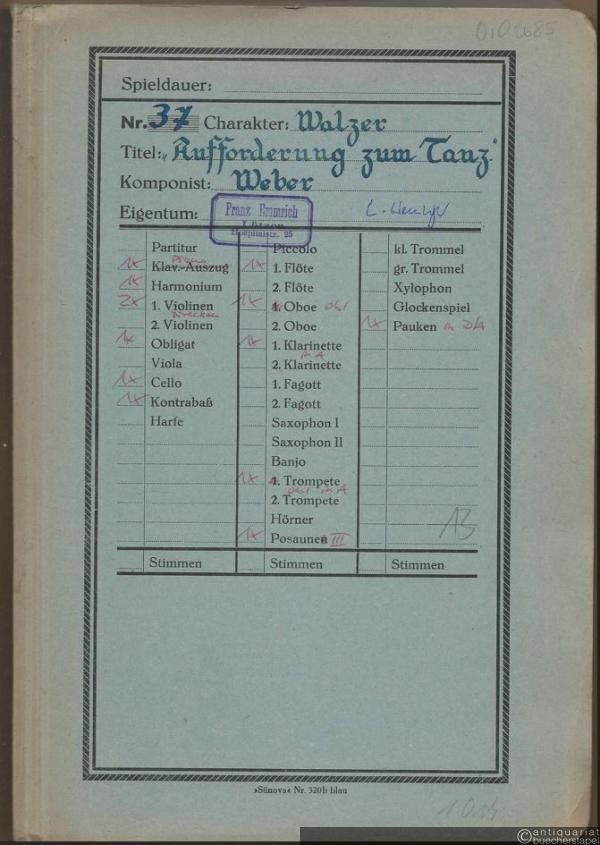 Spieldauer:
Nr. 37 Charakter: Walzer
Titel: „Aufforderung zum Tanz"
Komponist: Weber
Eigentum:
Hospitalstr. 25
Partitur
1x Klav.-Auszug
1x Harmonium
2x 1. Violinen
2. Violinen
1x Obligat
Viola
1x Cello
1x Kontrabaß
Harfe
Stimmen
Piccolo
1x 1. Flöte
2. Flöte
1x 1. Oboe obl
2. Oboe
1x 1. Klarinette
in A
2. Klarinette
1. Fagott
2. Fagott
Saxophon I
Saxophon II
Banjo
1x 1. Trompete
obl in A
2. Trompete
Hörner
1x Posaunen III
Stimmen
kl. Trommel
gr. Trommel
Xylophon
Glockenspiel
1x Pauken
13
Stimmen
»Sünova« Nr. 320b blau
© antiquariat
buecherstapel